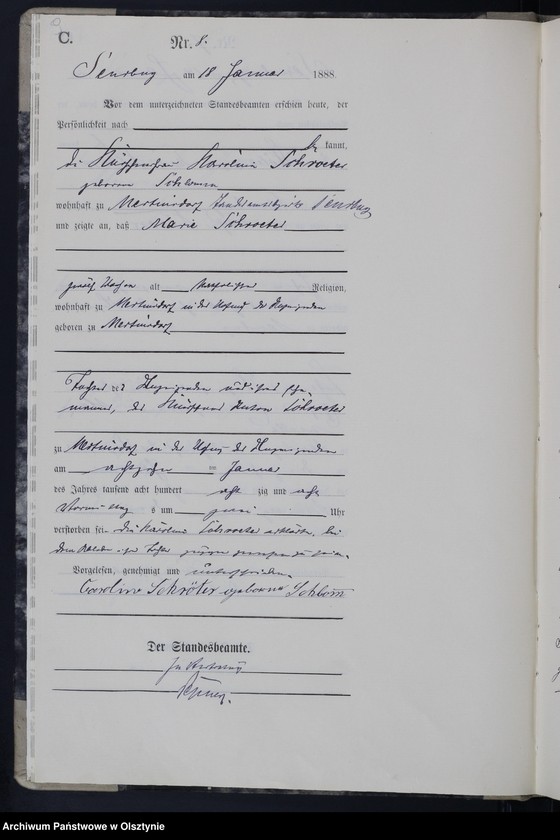 C.
Nr. 8.
Sensburg am 18 Januar 1888.
Vor dem unterzeichneten Standesbeamten erschien heute, der
Persönlichkeit nach
kannt,
die Karoline Schroeter
geborene
wohnhaft zu Mertinsdorf Sensburg
und zeigte an, daß Marie Schroeter
zwölf Wochen alt katholischer Religion,
wohnhaft zu Mertinsdorf in der Wohnung der Anzeigenden
geboren zu Mertinsdorf
Tochter der Anzeigenden und ihres Ehe-
mannes, des Anton Schroeter
zu Mertinsdorf in der Wohnung der Anzeigenden
am achtzehnten Januar
des Jahres tausend acht hundert acht zig und acht
Vormittags um zwei Uhr
verstorben sei. Die Karoline Schroeter erklärte, bei
dem Ableben ihrer Tochter zugegen gewesen zu sein.
Vorgelesen, genehmigt und unterschrieben.
Caroline Schröter geborene
Der Standesbeamte.
In Vertretung
Archiwum Państwowe w Olsztynie